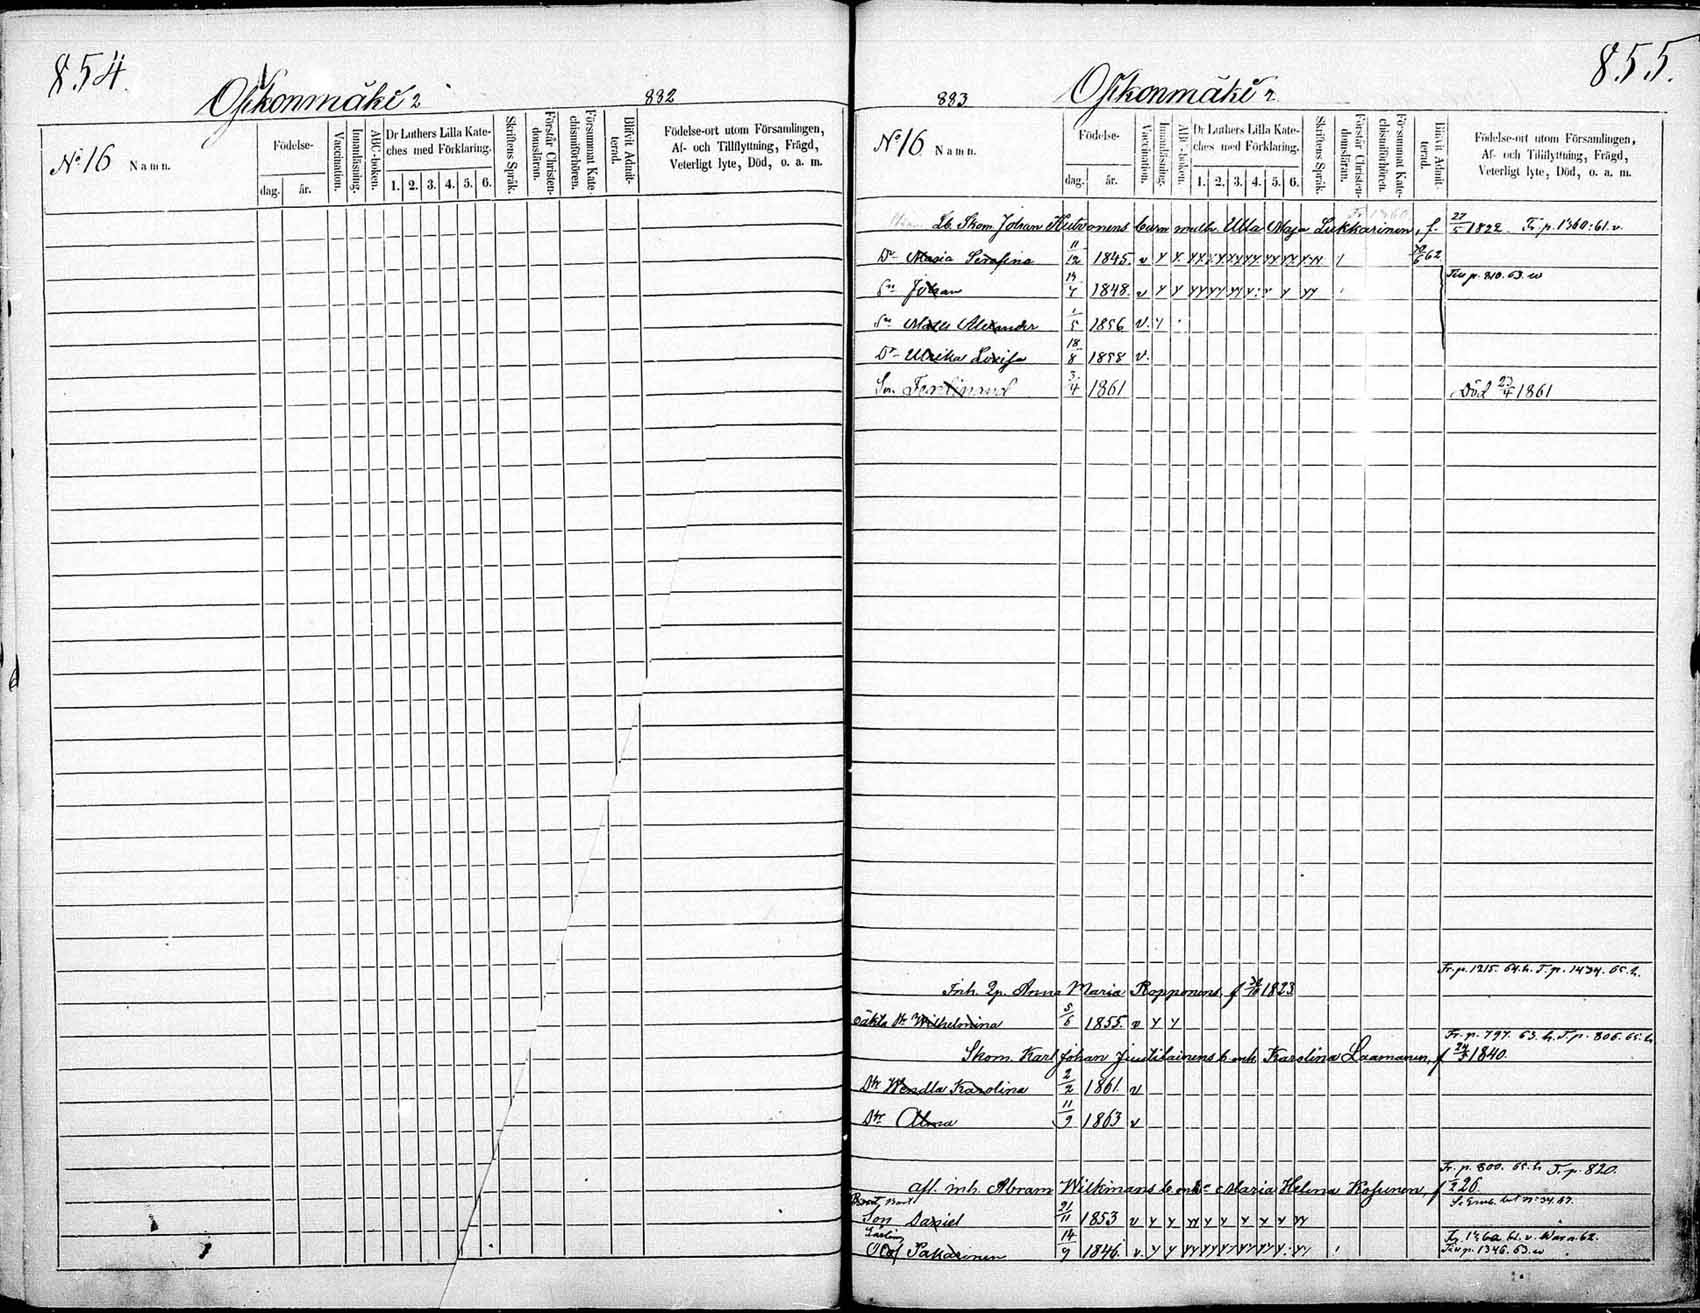 854.
Oskonmäki 2
882
No 16 Namn.
Födelse-
dag. år.
Vaccination.
Innanläsning.
ABC-boken.
Dr Luthers Lilla Kate-
ches med Förklaring.
1. 2. 3. 4. 5. 6.
Skriftens Språk.
Förstår Christen-
domsläran.
Försummat Kate-
chismiförhören.
Blifvit Admit-
terad.
Födelse-ort utom Församlingen,
Af- och Tillflyttning, Frägd,
Veterligt lyte, Död, o. a. m.
855.
883
Oskonmäki 2.
No 16 Namn.
Födelse-
dag. år.
Vaccination.
Innanläsning.
ABC-boken.
Dr Luthers Lilla Kate-
ches med Förklaring.
1. 2. 3. 4. 5. 6.
Skriftens Språk.
Förstår Christen-
domsläran.
Försummat Kate-
chismiförhören.
Blifvit Admit-
terad.
Födelse-ort utom Församlingen,
Af- och Tillflyttning, Frägd,
Veterligt lyte, Död, o. a. m.
Lb. Skom. Johan Hutvonens barn Ulla Maja Lukkarinen, f. 27/5 1822. Fr. p. 1360: 61. v.
Dr Maria Serafina 11/12 1845. v 62
Sn Johan 1848. v p. 810. 63.
Sn Mats Alexander 1/5 1856 v.
Dr Ulrika Lovisa 18/8 1858 v.
Son Ferdinand 3/4 1861 Död 23/4 1861
Fr. p. 1215. 64. h. T. p. 1434. 65. h.
Inh. Anna Maria Ropponens, f 1823
oäkta Dr Wilhelmina 5/6 1855. v
Fr. p. 797. 63. h. T. p. 806. 65. h
Skom. Karl Johan Juutilainens enk. Karolina Laamanen, f 24/3 1840.
Dtr Wendla Karolina 2/2 1861 v
Dtr Alma 11/9 1863 v
Fr. p. 800. 65. h T. p. 820.
afl. inh. Abram Wilkmans enka Maria Helena Kosunen, f 26.
Son Daniel 21/11 1853 v
Olof Sakarinen 14/9 1846. v.
p. 1346. 63.